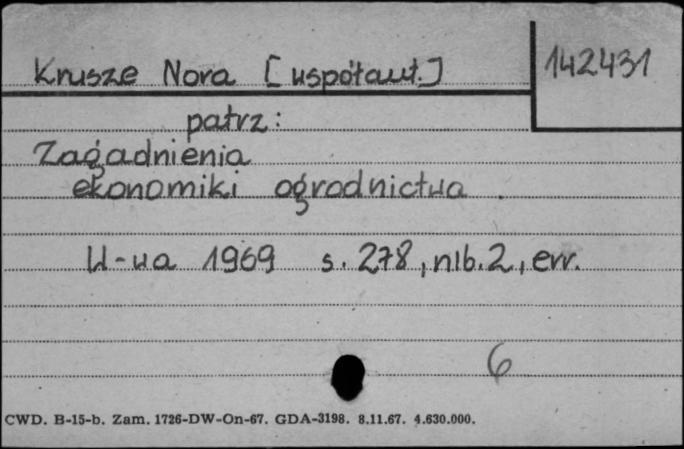 Krusze Nora [współaut.]
142431
patrz:
Zagadnienia
ekonomiki ogrodnictwa.
W-wa 1969 s. 278, nlb. 2, err.
6
CWD. B-15-b. Zam. 1726-DW-On-67. GDA-3198. 8.11.67. 4.630.000.